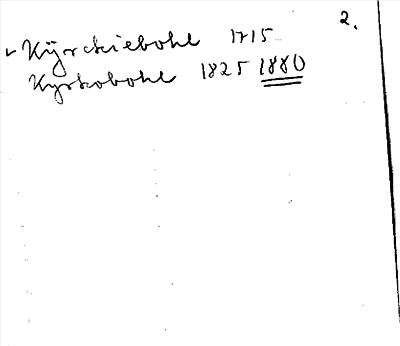 2.
Kÿrckiebohl 1715
Kyrkobohl 1825 1880